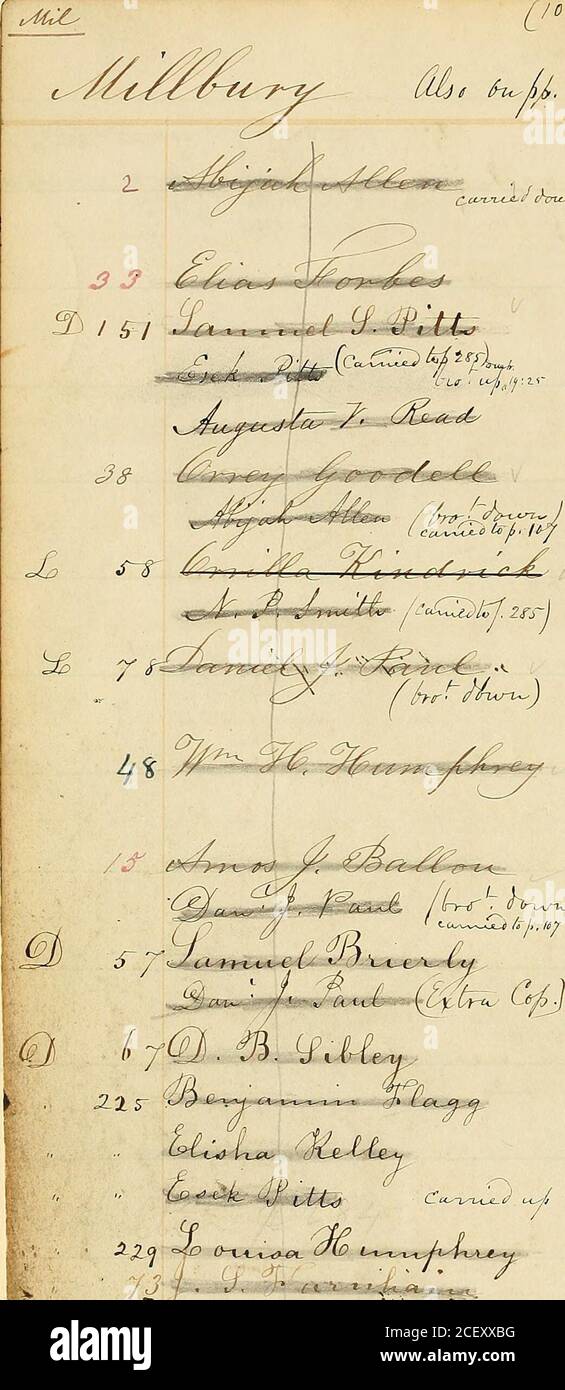 Mil (10
Millbury Also on pp.
2 Abijah Allen carried dow
33 Elias Forbes
D 151 Samuel S. Pitts
Esek Pitts (carried to p 285) bro.t up,
Augusta V. Read
38 Orrey Goodell
Abijah Allen (bro.t down) carried to p. 107
L 58 Orrilla Kindrick
N. P. Smith (carried to p. 285)
L 78 Daniel J. Paul
(bro.t down)
48 Wm H. Humphrey
15 Amos J. Ballou
Dan.l J. Paul (bro.t down carried to p. 107
D 57 Samuel Brierly
Dan.l J. Paul (Extra Cop.)
D 67 D. B. Sibley
225 Benjamin Flagg
" " Elisha Kelley
" " Esek Pitts carried up
229 Louisa Humphrey
73 J. S. Farnham
alamy
Image ID: 2CEXXBG
www.alamy.com